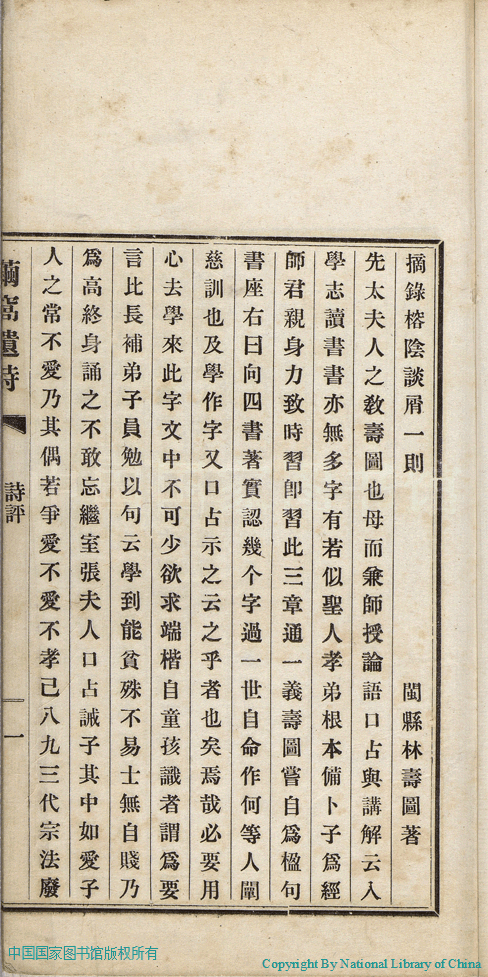 摘錄榕陰談屑一則
閩縣林壽圖著
先太夫人之敎壽圖也母而兼師授論語口占與講解云入
學志讀書書亦無多字有若似聖人孝弟根本備卜子爲經
師君親身力致時習卽習此三章通一義壽圖嘗自爲楹句
書座右曰向四書著實認幾个字過一世自命作何等人闈
慈訓也及學作字又口占示之云之乎者也矣焉哉必要用
心去學來此字文中不可少欲求端楷自童孩識者謂爲要
言比長補弟子員勉以句云學到能貧殊不易士無自賤乃
爲高終身誦之不敢忘繼室張夫人口占誡子其中如愛子
人之常不愛乃其偶若爭愛不愛不孝己八九三代宗法廢
繭窩遺詩
詩評
一
中国国家图书馆版权所有
Copyright By National Library of China